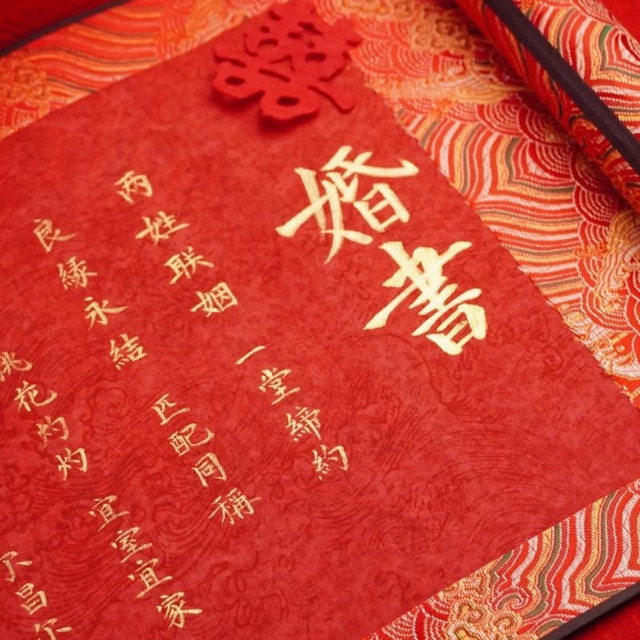 囍
婚書
兩姓联姻 一堂締約
良緣永結 匹配同稱
桃花灼灼 宜室宜家
尔昌尔